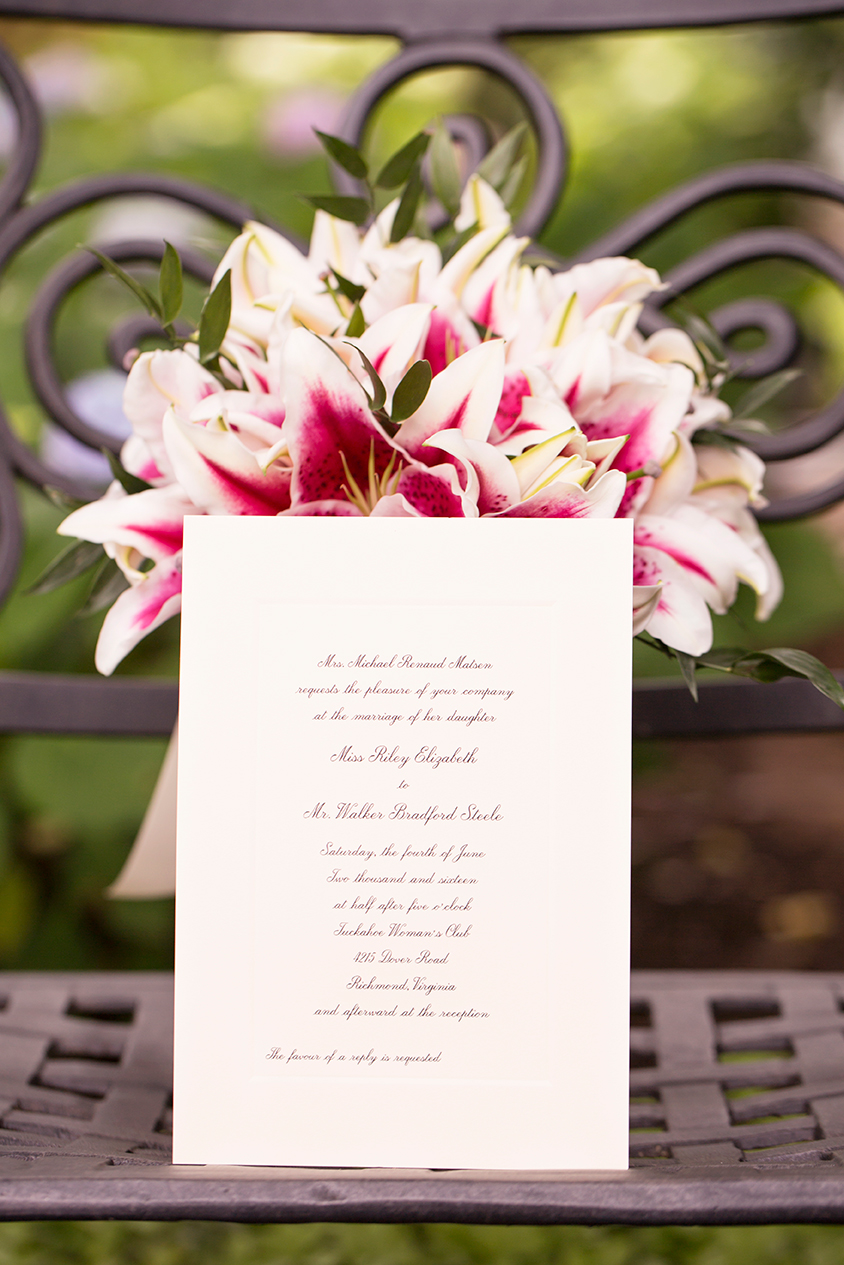 Mrs. Michael Renaud Matsen
requests the pleasure of your company
at the marriage of her daughter
Miss Riley Elizabeth
to
Mr. Walker Bradford Steele
Saturday, the fourth of June
Two thousand and sixteen
at half after five o'clock
Tuckahoe Woman's Club
4215 Dover Road
Richmond, Virginia
and afterward at the reception
The favour of a reply is requested